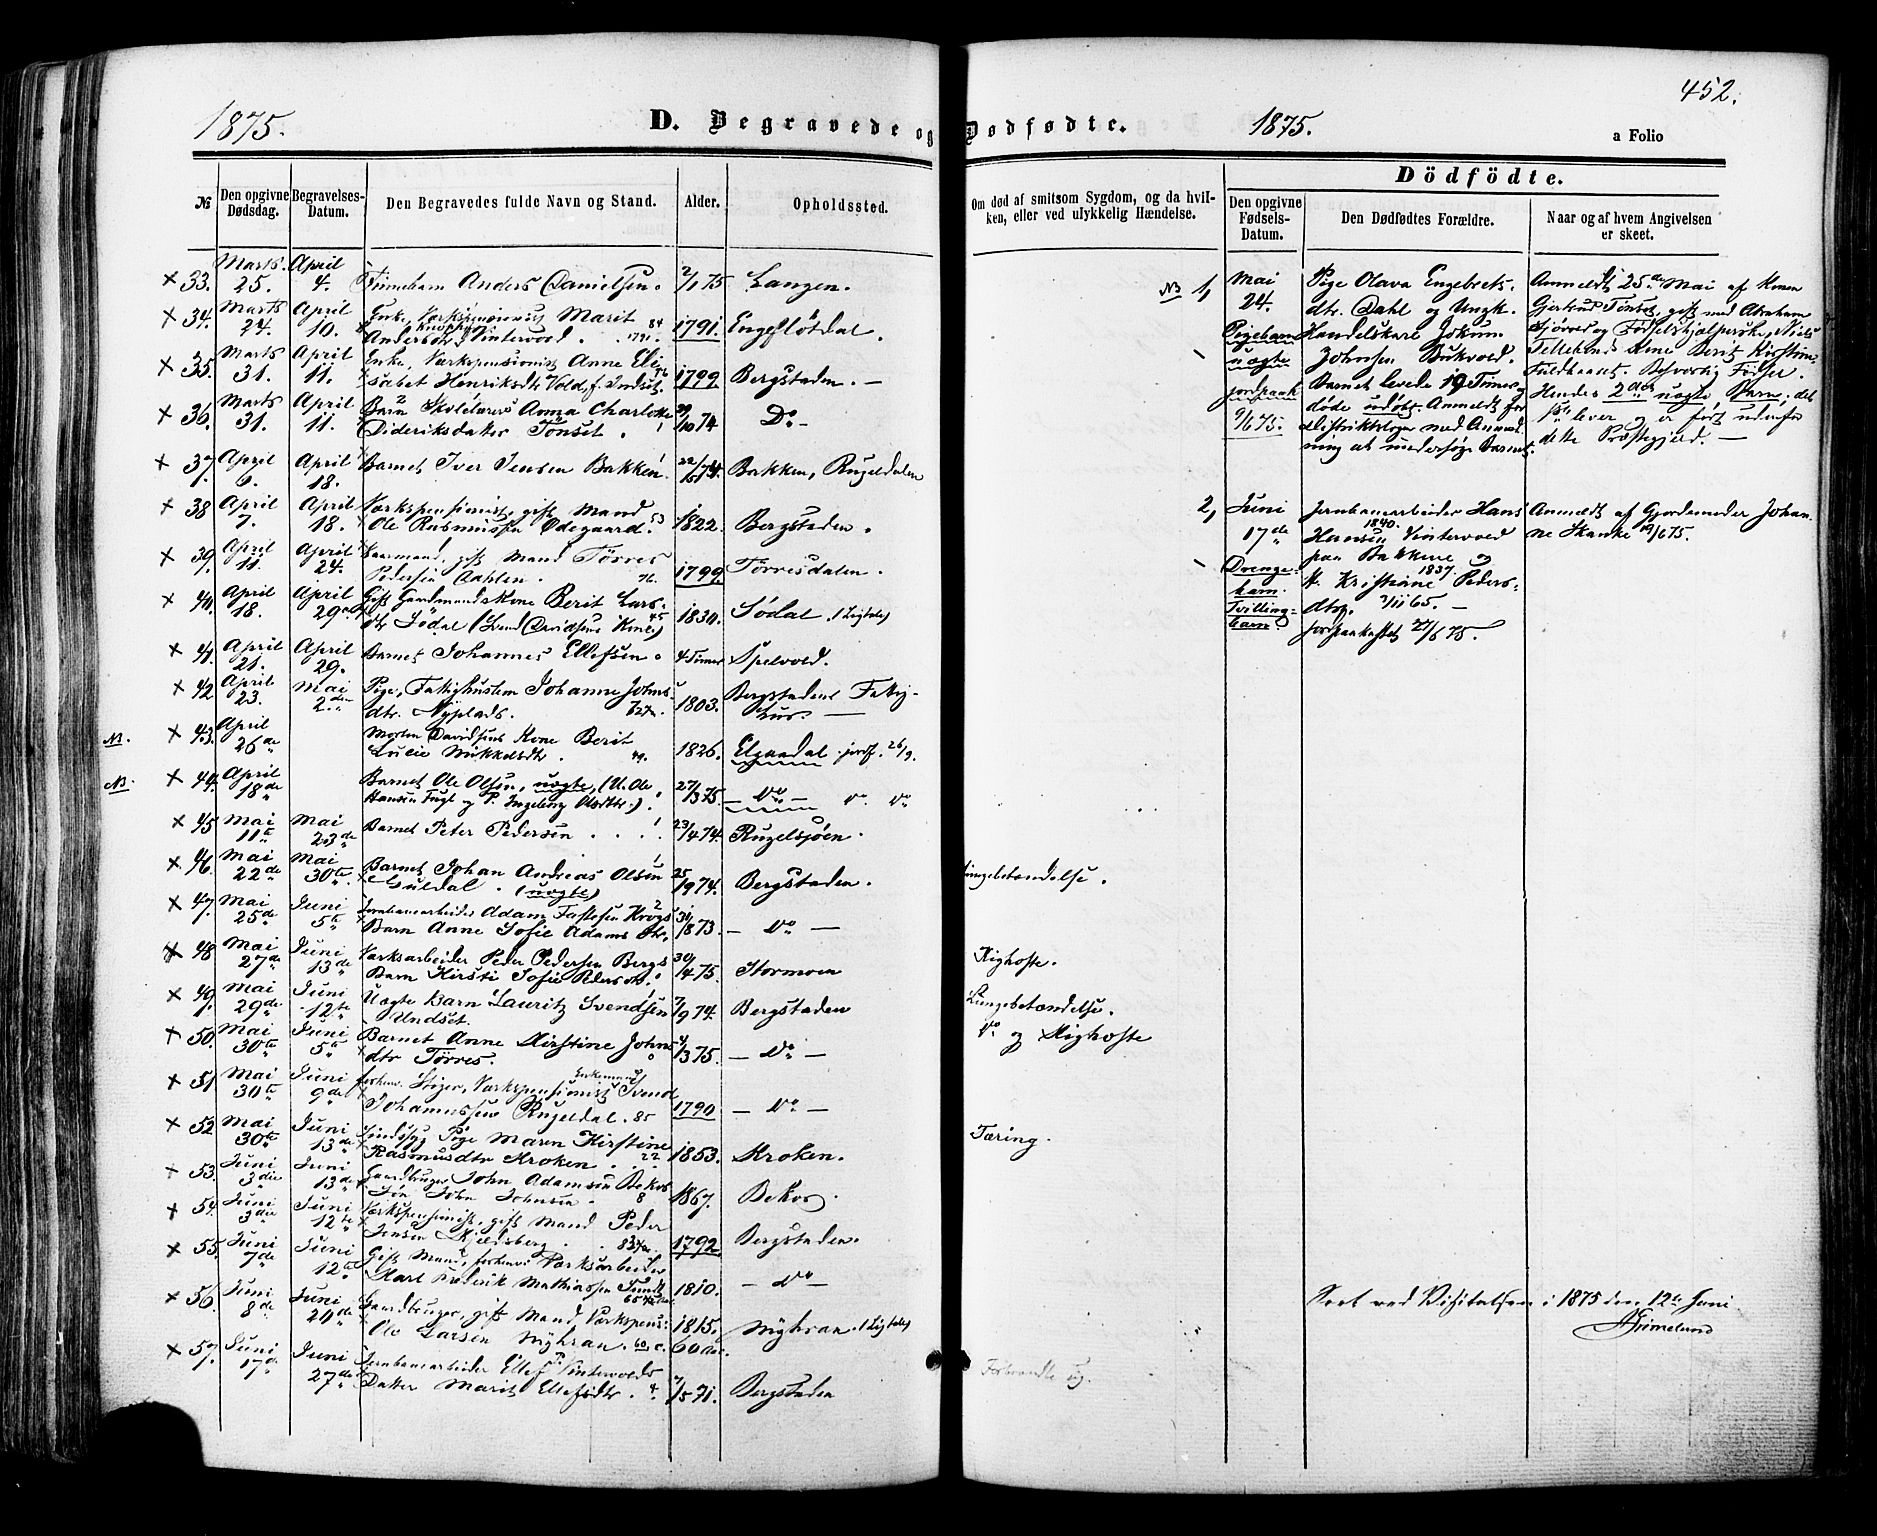 452.
1875.
D. Begravede og Dødfødte.
1875.
a Folio
Dödfödte.
№
Den opgivne Dødsdag.
Begravelses-Datum.
Den Begravedes fulde Navn og Stand.
Alder.
Opholdssted.
Om død af smitsom Sygdom, og da hvilken, eller ved ulykkelig Hændelse.
Den opgivne Fødsels-Datum.
Den Dødfødtes Forældre.
Naar og af hvem Angivelsen er skeet.
33. Marts 25. April 4. Finnebarn Anders Danielsen. 2/1 75 Langen.
34. Marts 24. April 10. Enke, Værkspensionist Marit
Andersdtr. Vintervold. 84 1791. Engeflötdal.
35. Marts 31. April 11. Enke, Værkspensionist Anne Eli-
sabet Henriksdtr Vold, f. 1799. Bergstaden.
36. Marts 31. April 11. Barn Skolelærers Anna Charlotte
Dideriksdatter Tönset. /10 74 Do
37. April 6. April 18. Barnet Iver Jensen Bakken. 22/ 74. Bakken, Rugeldalen
38 April 7. April 18. Værkspensionist, gift Mand
Ole Rasmussen Ødegaard. 53 1822. Bergstaden.
39. April 11. April 24. gift Mand Törres
Pedersen Aahlen. 76. 1799. Törresdalen.
40. April 18. April 29. Gift Gaardmandskone Berit Lars-
dtr Södal (Svend Davidsens Kone) 45 1830. Södal.
41. April 21. April 29. Barnet Johannes Ellefsen. 4 Timer Spelvold.
42 April 23. Mai 2den Pige, Fattighuslem Johanne Johns-
dtr. Nyplads. 1803. Bergstadens Fattig-
hus.
43. April 26de Morten Davidsens Kone Berit
Lucie Mikkelsdtr. 49. 1826. Elgaadal. jordf. 26/9.
44. April 18de Barnet Ole Olsen, uægte, (U. Ole
Hansen Fugl og P. Ingeborg Olsdtr.) 27/3 75 Do
45 Mai 11te Mai 23de Barnet Peter Pedersen 23/4 74. Rugelsjøen.
46. Mai 22de Mai 30te Barnet Johan Andreas Olsen
Guldal. (uægte) 25/1 74. Bergstaden. Lungebetændelse.
47. Mai 25de Juni 5te Jernbanearbeider Adam Fastesen Krogs
Barn Anne Sofie Adams dtr. 31/1 73. Do
48 Mai 27de Juni 13de Værksarbeider Peder Pedersen Bergs
Barn Kirsti Sofie Pedersdtr. 30/4 75. Stormoen Kighoste.
49. Mai 29de Juni 12te Uægte Barn Lauritz Svendsen
Undset. 7/9 74. Bergstaden Lungebetændelse.
50. Mai 30te Juni 5te Barnet Anne Kirstine Johns
dtr Törres. /3 75. Do Do og Kighoste
51. Mai 30te Juni 9de forhenv. Stiger, Værkspensionist Enkemand Svend
Johannessen Rugeldal. 85 1790 Do
52 Mai 30te Juni 13de Sindssyg Pige Maren Kirstine
Rasmusdtr Kroken. 22 1853. Kroken. Tæring.
53. Juni 3die Juni 13de Gaardbruger John Adamsen Bekos
Sön John Johnsen 8 1867. Bekos.
54. Juni 3die Juni 12te Værkspensionist, gift Mand Peder
Jensen Kjeldsberg. 1792. Bergstaden.
55. Juni 7de Juni 12te Gift Mand, forhenv. Værksarbeider
Karl Frederik Mathiassen Sundt 1810. Do
56. Juni 8de Juni 20de Gaardbruger, gift Mand Værkspens:
Ole Larsen Nyhran. 1815. Nyhran.
57. Juni 17de Juni 27de Jernbanearbeider Ellef Vintervolds
Datter Marit Ellefsdtr. 4 /5 71. Bergstaden
NB 1, Mai 24. Pigebarn uægte
Pige Olava Engebrets-
dtr. Dahl og Ungk.
Handelskarl Jokum
Johnsen Bukvold.
Barnet levede 19 Timer,
døde udöbt. Anmeldt for
Distriktslæge med Anmod-
ning at undersöge Barnet.
Anmeldt 25de Mai af Konen
Gjertrud Tönset, gift med Abraham
Sjövold og Fødselshjælperske, Niels
Kone Berit Kirstine
Fuldbaaret. Besværlig Födsel.
Hendes 2det uægte Barn; det
1ste lever og er födt udenfor
dette Præstegjeld.
2, Juni 17de Drenge-
barn.
Tvilling-
barn.
Jernbanearbeider Hans
Hansen 1840. Vintervold
paa Bakkene og
H. Kristiane 1837. Peders-
dtr. 65.
jordpaakastet 27/6 75.
Anmeldt af Gjordemoder Johan-
ne Skanke 19/6 75.
Seet ved Visitatsen i 1875 den 12te Juni
Grimelund